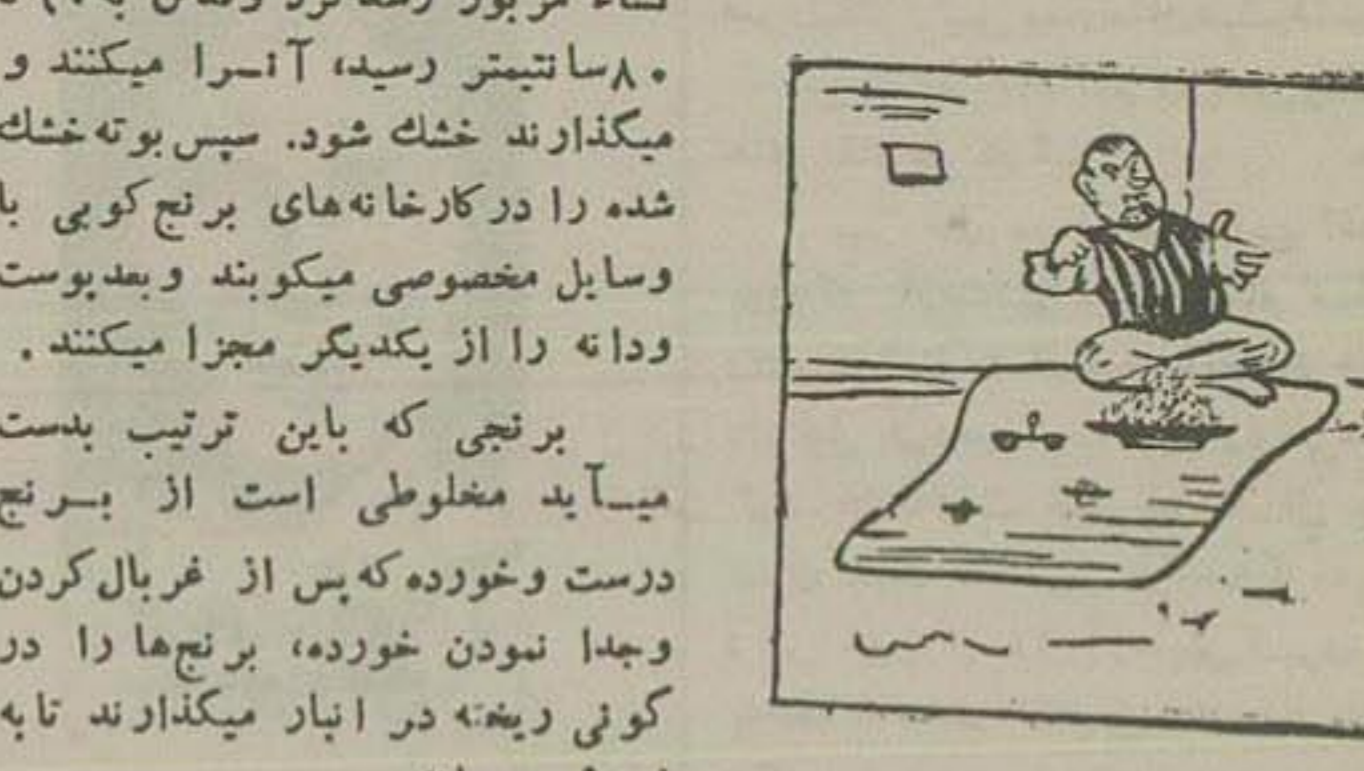 ۸۰سانتیمتر رسید، آنـرا میکنند و
میگذارند خشك شود. سپس بوته خشك
شده را در کارخانه‌های برنج کوبی با
وسایل مخصوصی میکوبند و بعد پوست
ودانه را از یکدیگر مجزا میکنند.
برنجی که باین ترتیب بدست
میـآید مخلوطی است از بـرنج
درست وخورده که پس از غربال کردن
وجدا نمودن خورده، برنج‌ها را در
گونی ریخته در انبار میگذارند تا به